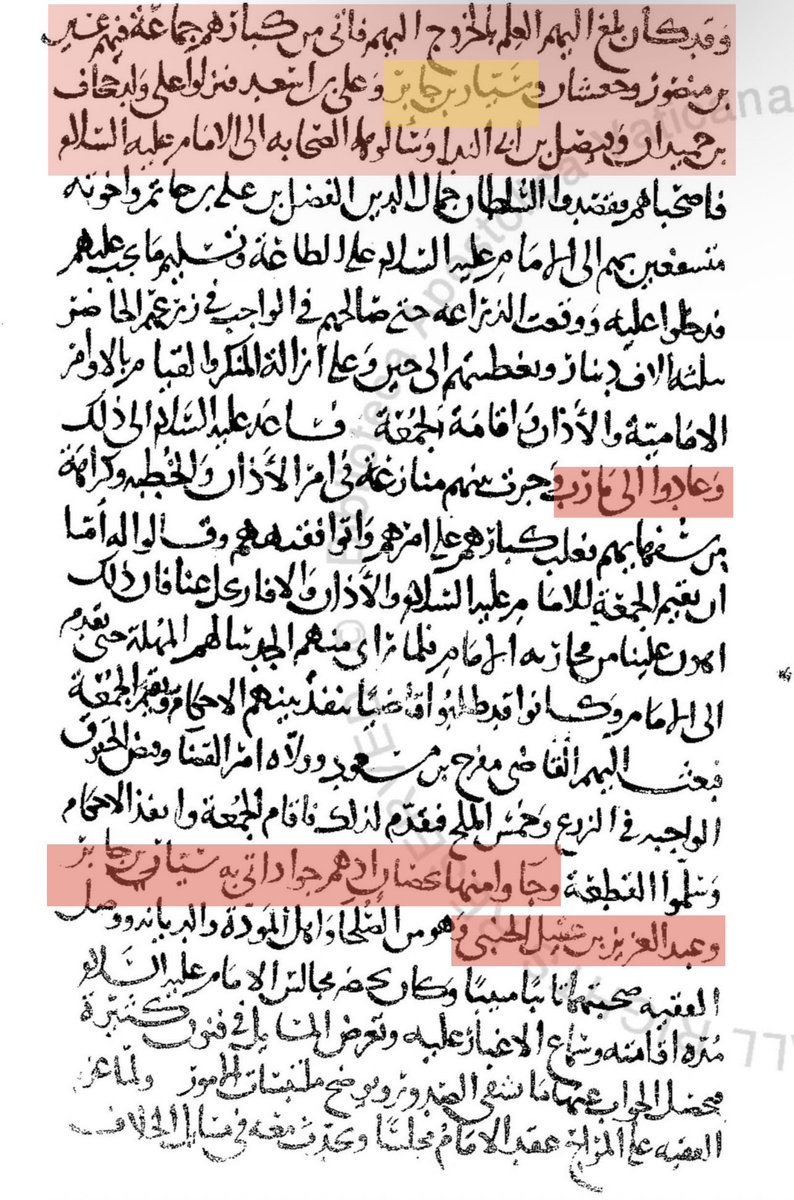 وقد كان بلغ اليهم العلم بالخروج اليهم فاتى من كبارهم جماعة فيهم
بن منصور وحعشان وسيار بن جابر وعلى بن اسعد فنزلوا على ولد جحاف
بن حميدان وفيصل بن ابى الندا وسألوهما الصحابه الى الامام عليه السلام
فاصحباهم وقصدوا السلطان جمال الدين الفضل بن على بن حاتم واخوته
متشفعين بهم الى الامام عليه السلام على الطاعة وتسليم ما يجب عليهم
فدخلوا عليه ووقعت الذراعه حتى صالحهم فى الواجب فى زرعهم الحاضر
بثلثه الاف دينار وبقطعتهم الى حين وعلى ازالة المنكر والقيام بالاوامر
الامامية والأذان واقامة الجمعة فساعد عليه السلام الى ذلك
وعادوا الى مارب فجرت بينهم منازعة فى امر الأذان والخطبه وكراهة
من سفهائهم فغلب كبارهم على امرهم واتوا فقيههم وقالوا له أما
ان تقيم الجمعة للامام عليه السلام والأذان والا فارحل عنا فان ذلك
اهون علينا من محاربة الامام فلما راى منهم الجد سالهم المهلة حتى يقدم
الى الامام وكانوا قد طلبوا قاضيا ينفذ بينهم الاحكام ويقيم الجمعة
فبعث اليهم القاضى مفرح بن مسعود وولاه امر القضا وقبض الحقوق
الواجبه فى الزرع وخمس الملح فقدم لذلك فاقام الجمعة وانفذ الاحكام
وسلموا القطعة وجاوا منها بحصان ادهم جواد اتى به سيار بن جابر
وعبد العزيز بن عقيل الحبى وهو من الصلحا واهل المودة والديانه ووصل
الفقيه صحبتهما تائبا منيبا وكان يحضر مجالس الامام عليه السلام
مدة اقامته وسماع الاخبار عليه وتعرض المسايل فى فنون كثيرة
فيحصل الجواب عنها بما شفى الصدور ويوضح ملتبسات الامور ولما عزم
الفقيه على المراح عقد الامام مجلسا وتحدث معه فى مسايل الخلاف